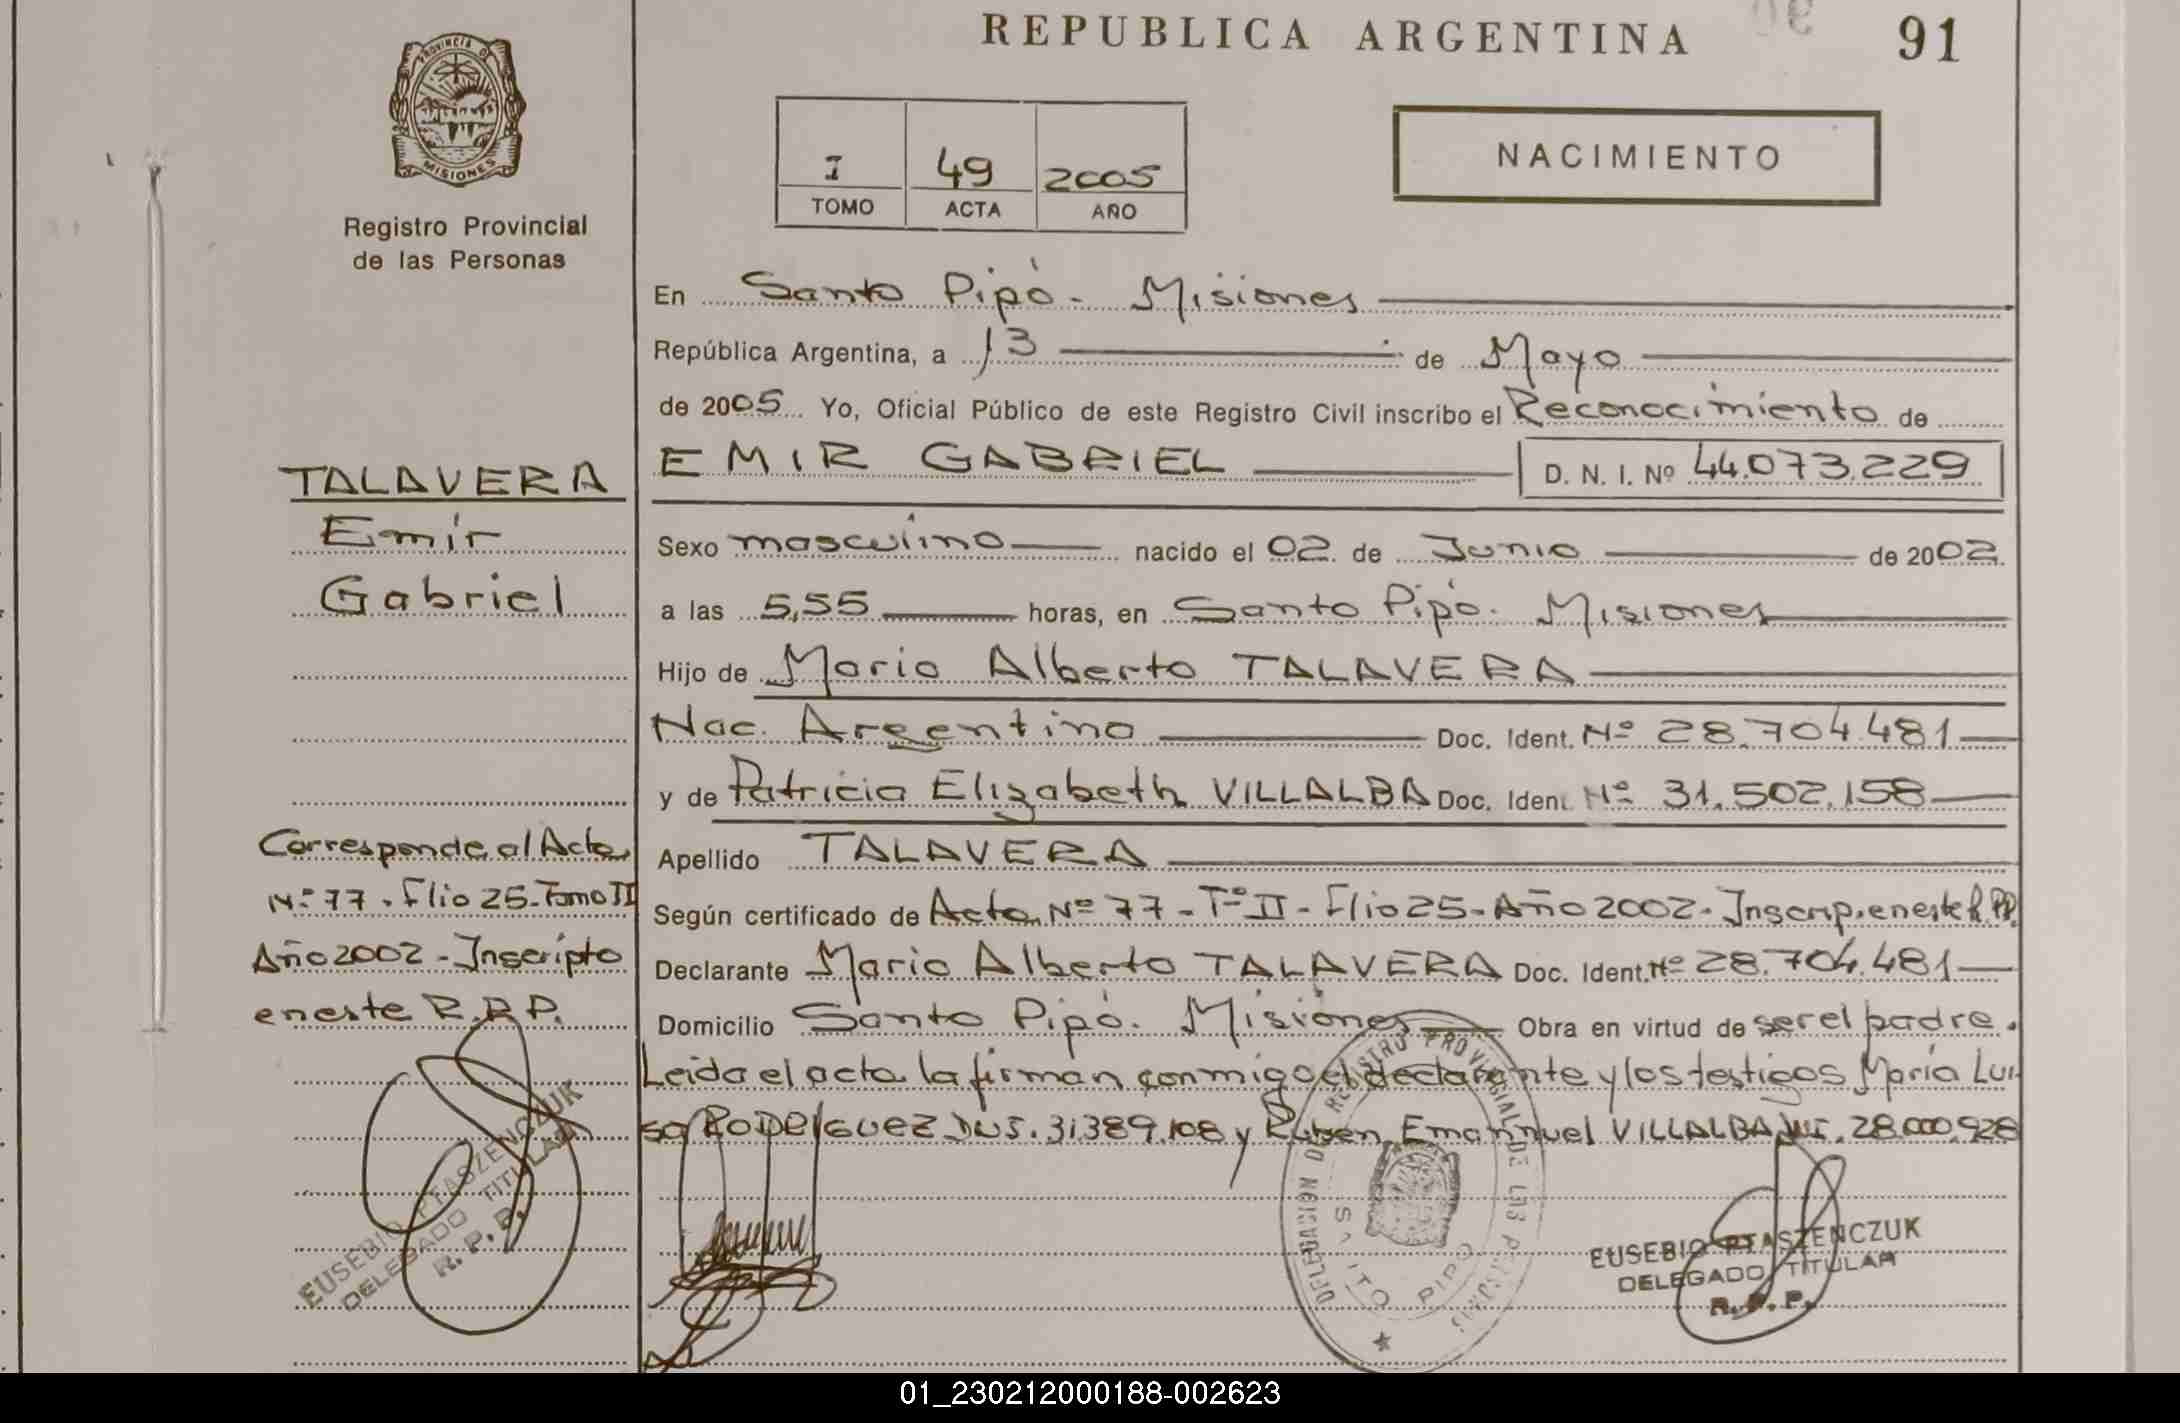 REPUBLICA ARGENTINA
91
PROVINCIA DE
MISIONES
Registro Provincial
de las Personas
I 49 2005
TOMO ACTA AÑO
NACIMIENTO
En Santo Pipó - Misiones
República Argentina, a 13 de Mayo
de 2005 Yo, Oficial Público de este Registro Civil inscribo el Reconocimiento de
EMIR GABRIEL D. N. I. Nº 44.073.229
TALAVERA
Emir
Gabriel
Sexo masculino nacido el 02 de Junio de 2002.
a las 5,55 horas, en Santo Pipó. Misiones
Hijo de Mario Alberto TALAVERA
Nac. Argentino Doc. Ident. Nº 28.704.481
y de Patricia Elizabeth VILLALBA Doc. Ident. Nº 31.502.158
Apellido TALAVERA
Según certificado de Acta Nº 77 - Tº II - Flio 25 - Año 2002 - Inscrip. en este R.P.P.
Declarante Mario Alberto TALAVERA Doc. Ident. Nº 28.704.481
Domicilio Santo Pipó. Misiones Obra en virtud de ser el padre.
Leida el acta la firman conmigo el declarante y los testigos María Lui
sa RODRIGUEZ DNI. 31.389.108 y Ruben Emannuel VILLALBA DNI. 28.000.928
Corresponde al Acta
Nº 77 - Flio 25 - Tomo II
Año 2002 - Inscripto
en este R.P.P.
EUSEBIO PTASZENCZUK
DELEGADO TITULAR
R. P. P.
DELEGACION DEL REGISTRO PROVINCIAL DE LAS PERSONAS
SANTO PIPO
EUSEBIO PTASZENCZUK
DELEGADO TITULAR
R. P. P.
01_230212000188-002623